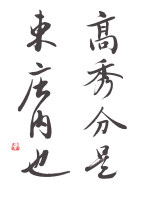 高秀分是
東庄内也